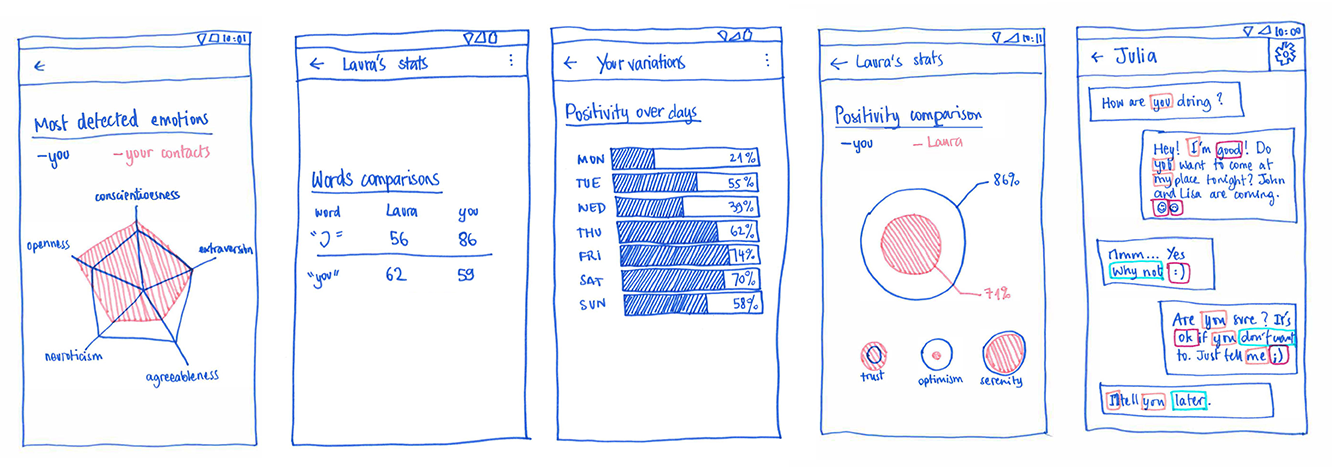 10:01
←
Most detected emotions
—you —your contacts
conscientioesness
openness
extraversion
neuroticism
agreeableness
← Laura's stats ⋮
Words comparisons
word Laura you
"I" 56 86
"you" 62 59
← Your variations ⋮
Positivity over days
MON 21%
TUE 55%
WED 39%
THU 62%
FRI 74%
SAT 70%
SUN 58%
10:11
← Laura's stats
Positivity comparison
—you —Laura
86%
71%
trust optimism serenity
10:00
← Julia
How are you doing?
Hey! I'm good! Do
you want to come at
my place tonight? John
and Lisa are coming.
Mmm... Yes
why not :)
Are you sure? It's
ok if you don't want
to. Just tell me ;)
I'll tell you later.